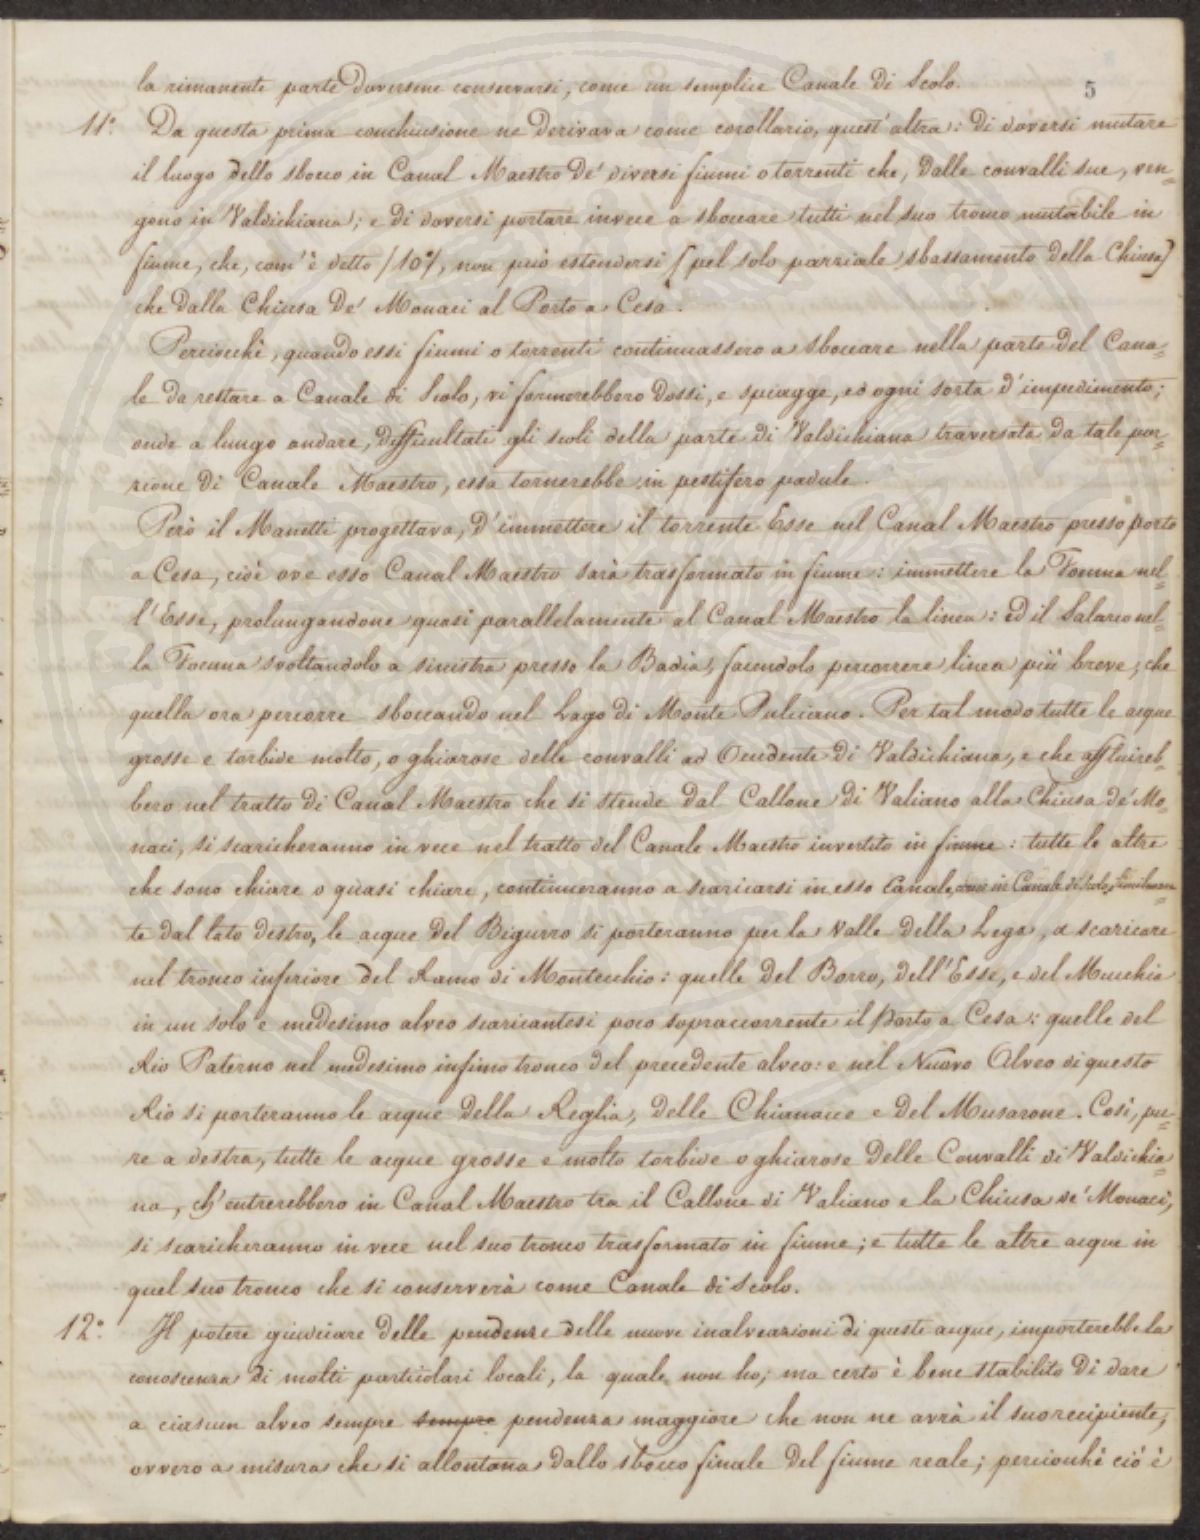 5
la rimanente parte doversene conservarsi, come un semplice Canale di Scolo.
11.° Da questa prima conchiusione ne derivava come corollario, quest'altra: di doversi mutare
il luogo dello sbocco in Canal Maestro de' diversi fiumi o torrenti che, dalle convalli sue, ven=
gono in Valdichiana; e di doversi portare invece a sboccare tutti nel suo tronco mutabile in
fiume, che, com'è detto /10.°/, non può estendersi (pel solo parziale sbassamento della Chiusa)
che dalla Chiusa de' Monaci al Porto a Cesa.
Perciocchè, quando essi fiumi o torrenti continuassero a sboccare nella parte del Cana=
le da restare a Canale di Scolo, vi formerebbero dossi, e spiagge, ed ogni sorta d'impedimento;
onde a lungo andare, difficultati gli scoli della parte di Valdichiana traversata da tale por=
zione di Canale Maestro, essa tornerebbe in pestifero padule.
Però il Manetti progettava, d'immettere il torrente Esse nel Canal Maestro presso porto
a Cesa, cioè ove esso Canal Maestro sarà trasformato in fiume: immettere la Foenna nel=
l'Esse, prolungandone quasi parallelamente al Canal Maestro la linea: ed il Salarco nel=
la Foenna svoltandolo a sinistra presso la Badia, facendolo percorrere linea più breve, che
quella ora percorre sboccando nel Lago di Monte Pulciano. Per tal modo tutte le acque
grosse e torbide molto, o ghiarose delle convalli ad Occidente di Valdichiana, e che affluireb=
bero nel tratto di Canal Maestro che si stende dal Callone di Valiano alla Chiusa de' Mo=
naci, si scaricheranno in vece nel tratto del Canale Maestro invertito in fiume: tutte le altre
che sono chiare o quasi chiare, continueranno a scaricarsi in esso Canale, come in Canale di Scolo, Similmen=
te dal lato destro, le acque del Bigurro si porteranno per la Valle della Lega, a scaricare
nel tronco inferiore del Ramo di Montecchio: quelle del Borro, dell'Esse, e del Mucchia
in un solo e medesimo alveo scaricantesi poco sopraccorrente il porto a Cesa: quelle del
Rio Paterno nel medesimo infimo tronco del precedente alveo: e nel Nuovo Alveo di questo
Rio si porteranno le acque della Reglia, delle Chianacce e del Musarone. Così, pu=
re a destra, tutte le acque grosse e molto torbide o ghiarose delle Convalli di Valdichia=
na, ch'entrerebbero in Canal Maestro tra il Callone di Valiano e la Chiusa de' Monaci,
si scaricheranno in vece nel suo tronco trasformato in fiume; e tutte le altre acque in
quel suo tronco che si conserverà come Canale di Scolo.
12.° Il potere giudicare delle pendenze delle nuove inalveazioni di queste acque, importerebbe la
conoscenza di molti particolari locali, la quale non ho; ma certo è bene stabilito di dare
a ciascun alveo sempre sempre pendenza maggiore che non ne avrà il suo recipiente,
ovvero a misura che si allontana dallo sbocco finale del fiume reale; perciocchè ciò è